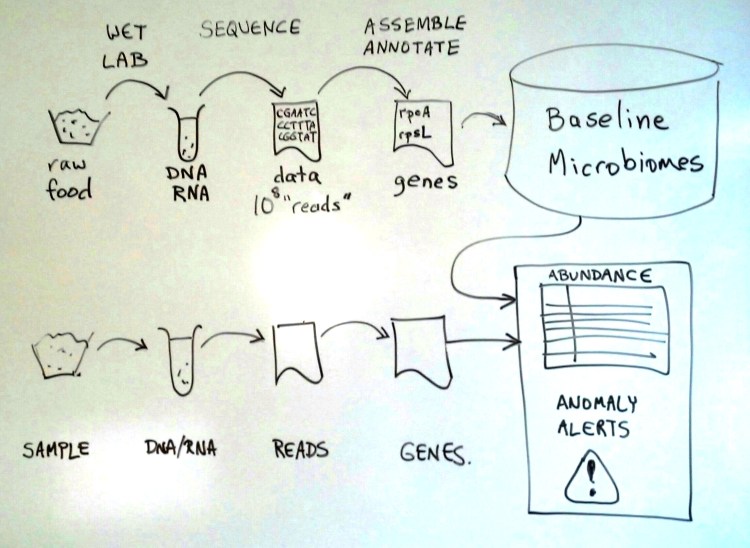 WET
LAB
SEQUENCE
ASSEMBLE
ANNOTATE
raw
food
DNA
RNA
CGAATC
CCTTTA
CGGTAT
data
10⁸ "reads"
rpoA
rpsL
genes
Baseline
Microbiomes
SAMPLE
DNA/RNA
READS
GENES.
ABUNDANCE
ANOMALY
ALERTS
!